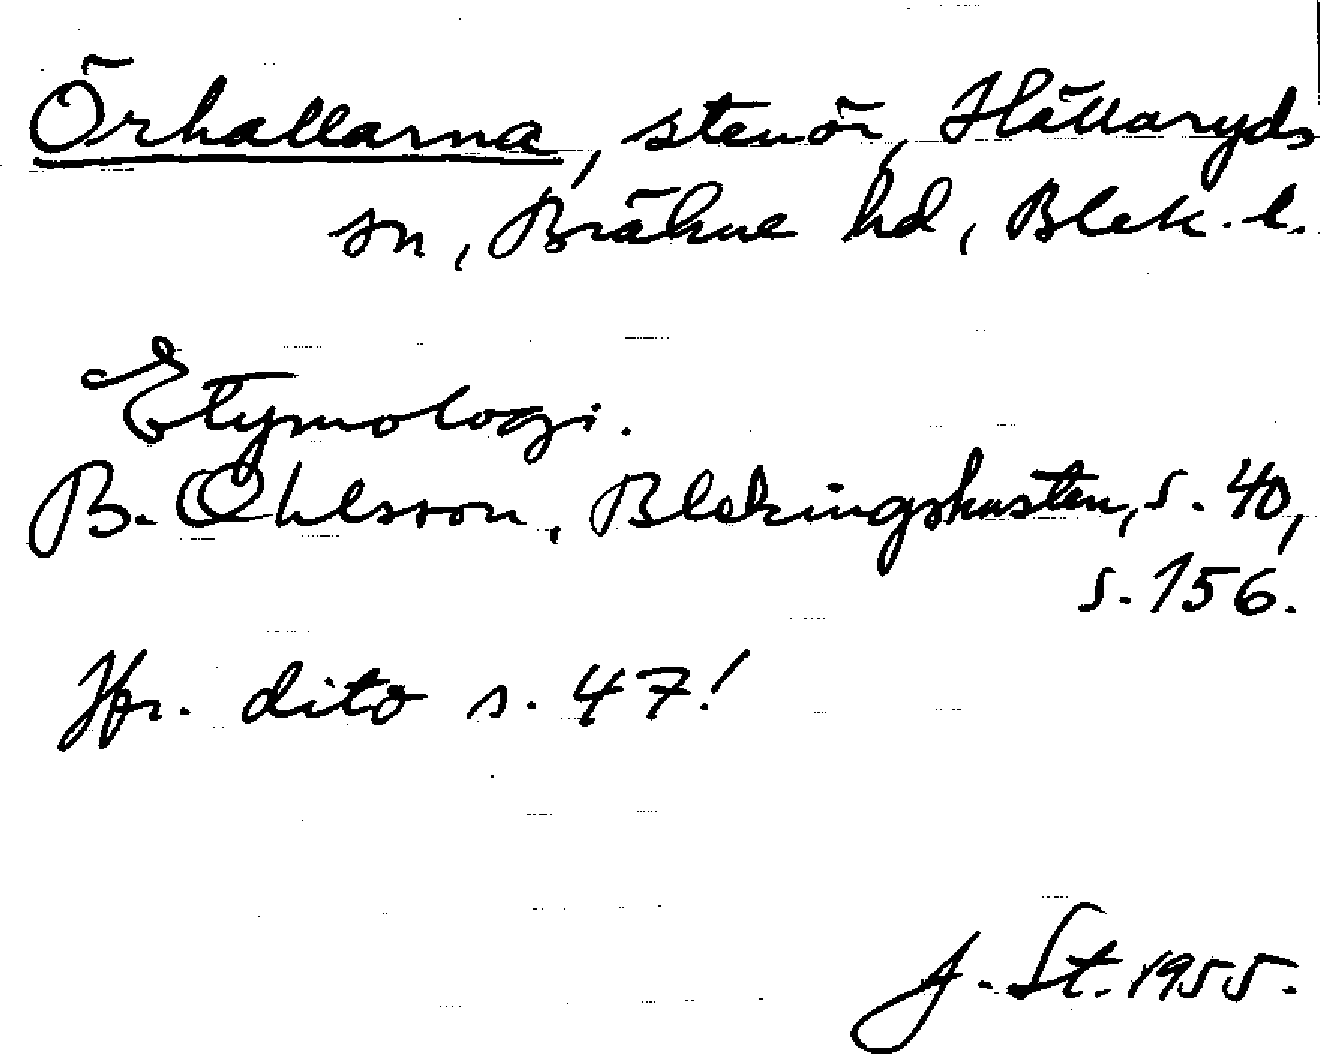 Örhallarna, stenör, Hällaryds
sn, Bräkne hd, Blek. l.
Etymologi.
B. Ohlsson, Blekingskusten, s. 40,
s. 156.
Jfr. dito s. 47!
J. St. 1955.